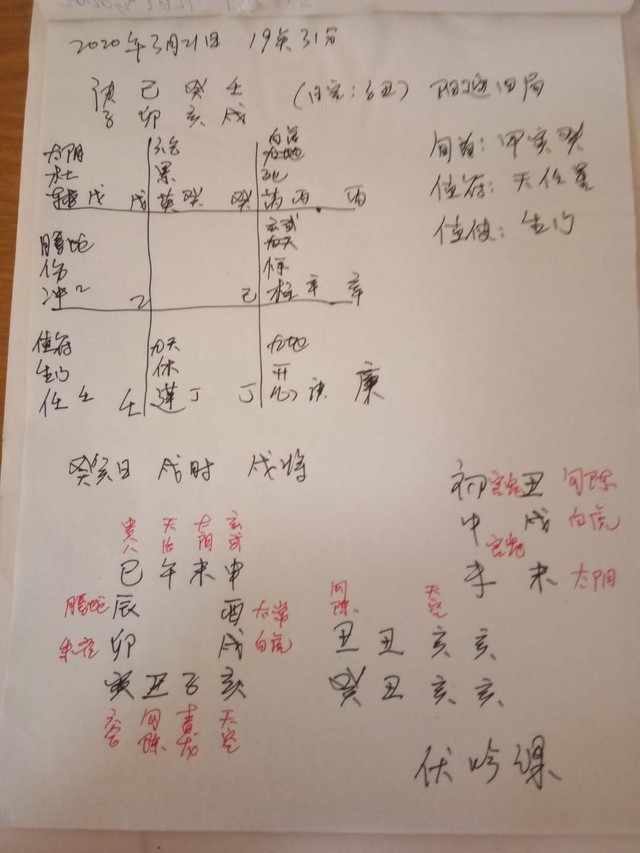 2020年3月21日 19点31分
庚 己 癸 壬
子 卯 亥 戌
(日空:子丑) 阳遁四局
旬首: 甲寅癸
值符: 天任星
值使: 生门
太阴 六合 白虎
杜 景 死
戊 戊 英 癸 癸 丙 丙
玄武
九天
螣蛇 惊
伤
冲 乙 乙 己 柱 辛 辛
值符 九天 九地
生门 休 开
任 壬 壬 蓬 丁 丁 心 庚
癸亥日 戌时 戌将
初 丑 勾陈
中 戌 白虎
末 未 太阴
贵人 太阴 玄武
巳 午 未 申
螣蛇 辰 酉 太常
朱雀 卯 戌 白虎
寅 丑 子 亥
六合 勾陈 青龙 天空
勾陈 天空
丑 丑 亥 亥
癸 丑 亥 亥
伏吟课